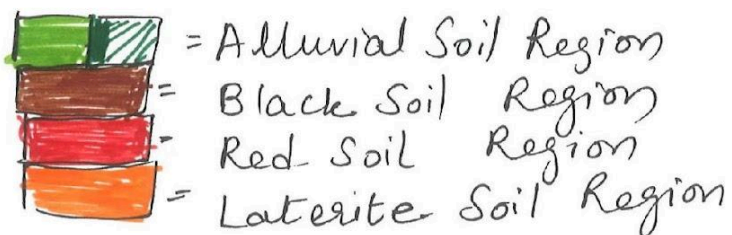 = Alluvial Soil Region
= Black Soil Region
= Red Soil Region
= Laterite Soil Region